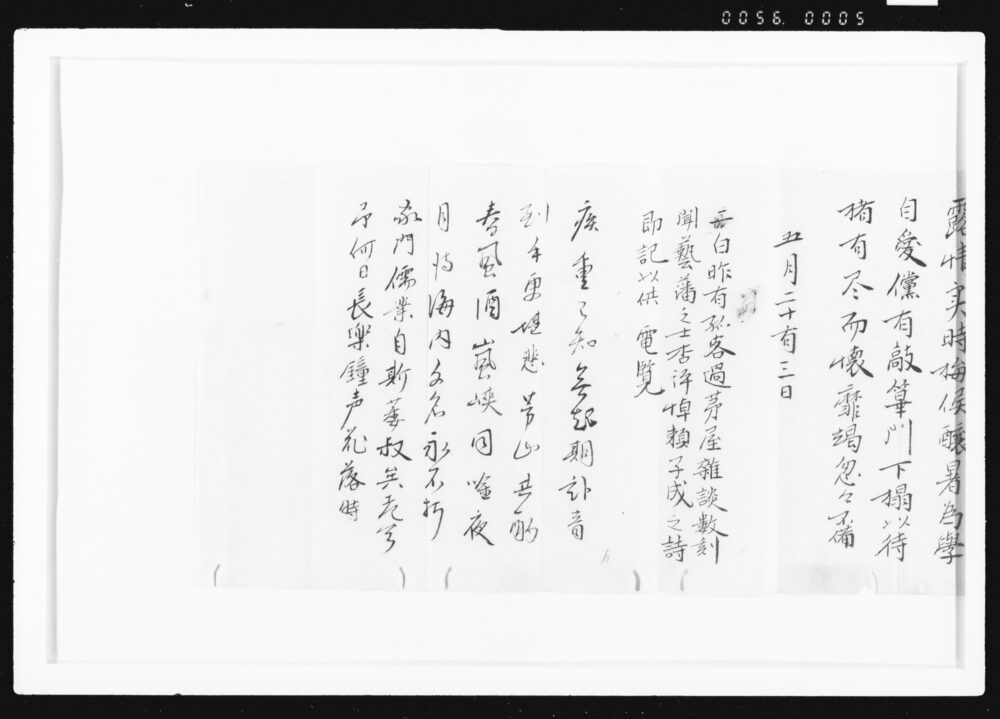 0056. 0005
露情实時梅候釀暑為學
自愛儻有敲篳門下榻以待
楮有尽而懷靡竭忽々不備
五月二十有三日
白昨有孤客過茅屋雜談數刻
聞藝藩之士杏坪悼賴子成之詩
即記以供電覽
疾重已知無起期訃音
到手更堪悲 山共酌
春風酒嵐峽同吟夜
月詩海内文名永不朽
家門儒業自斯萎叔矣老兮
予何日長樂鐘声花落時